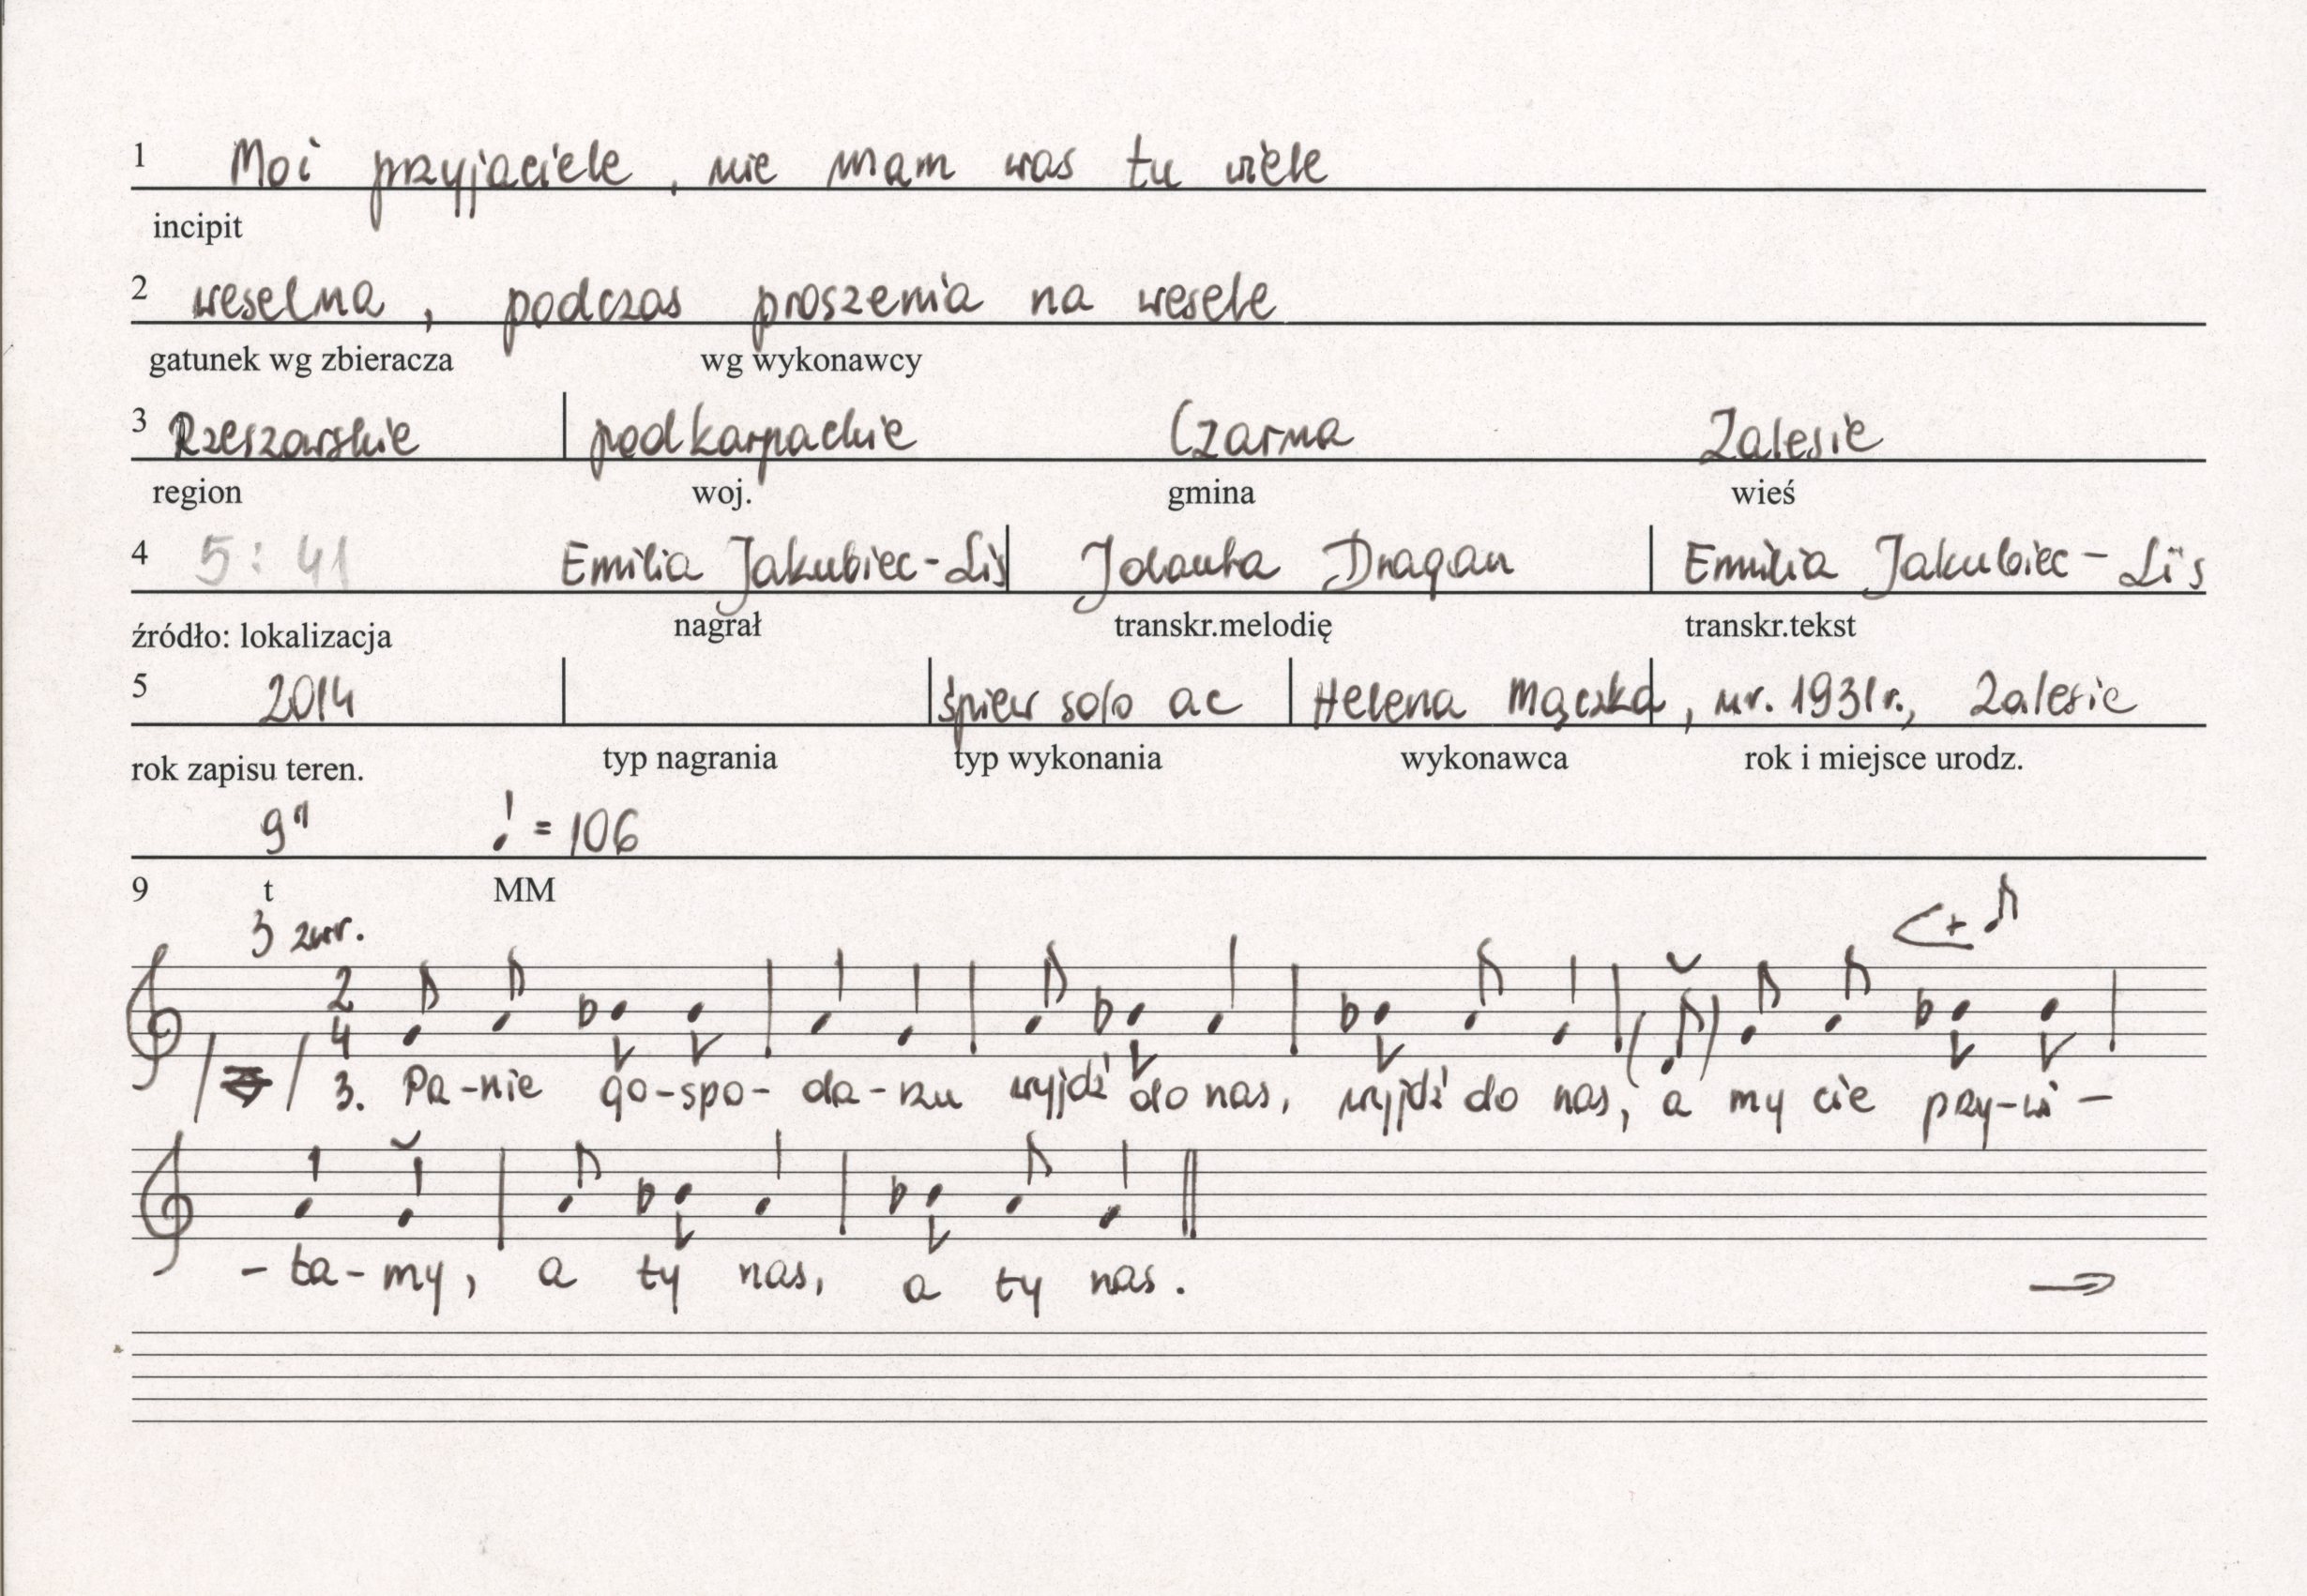 1 Moi przyjaciele, nie mam was tu wiele
incipit
2 weselna, podczas proszenia na wesele
gatunek wg zbieracza wg wykonawcy
3 Rzeszowskie podkarpackie Czarna Zalesie
region woj. gmina wieś
4 5:41 Emilia Jakubiec-Lis Jolanta Dragan Emilia Jakubiec-Lis
źródło: lokalizacja nagrał transkr.melodię transkr.tekst
5 2014 śpiew solo ac Helena Mączka, ur. 1931r., Zalesie
rok zapisu teren. typ nagrania typ wykonania wykonawca rok i miejsce urodz.
9" ♩ = 106
9 t MM
3 zwr. <+ ♪
2
4
3. Pa-nie go-spo-da-rzu wyjdź do nas, wyjdź do nas, a my cie przy-wi-
-ta-my, a ty nas, a ty nas.